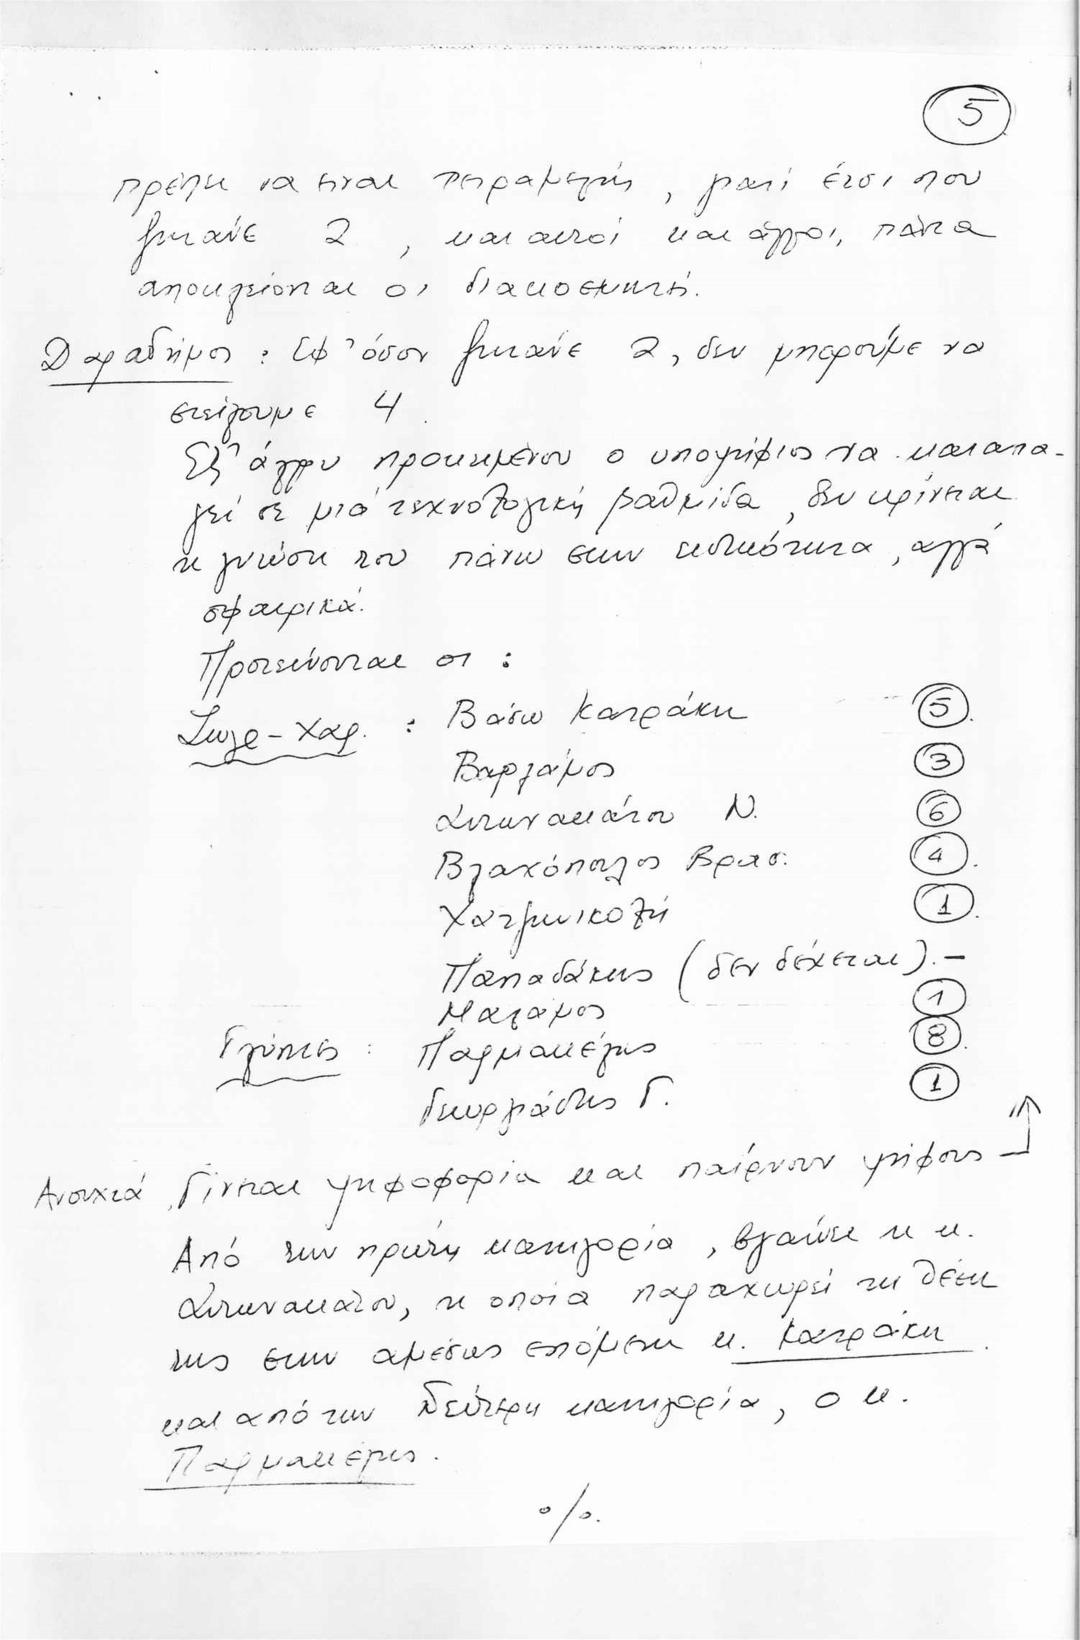 5
πρέπει να είναι τετραμελής, γιατί έτσι που
ζητάνε 2, και αυτοί και άλλοι, πάντα
αποκλείονται οι διακοσμητές.
Δαραδήμος : Εφ' όσον ζητάνε 2, δεν μπορούμε να
στείλουμε 4.
Εξ' άλλου προκειμένου ο υποψήφιος να καταλα-
γεί σε μιά τεχνολογική βαθμίδα, δεν κρίνεται
η γνώση του πάνω στην ειδικότητα, αλλά
σφαιρικά.
Προτείνονται οι :
Ζωγρ-Χαρ. : Βάσω Κατράκη 5
Βαρλάμος 3
Αντωνακάτου Ν. 6
Βλαχόπουλος Βρασ. 4
Χατζηνικολή 1
Παπαδάκης (δεν δέχεται). -
Μαλάμος 1
Γλύπτες : Παρμακέλης 8
Γεωργιάδης Γ. 1
Ανοιχτά, Γίνεται ψηφοφορία και παίρνουν ψήφους
Από την πρώτη κατηγορία, βγαίνει η κ.
Αντωνακάτου, η οποία παραχωρεί τη θέση
της στην αμέσως επόμενη κ. Κατράκη.
και από την δεύτερη κατηγορία, ο κ.
Παρμακέλης.
%.